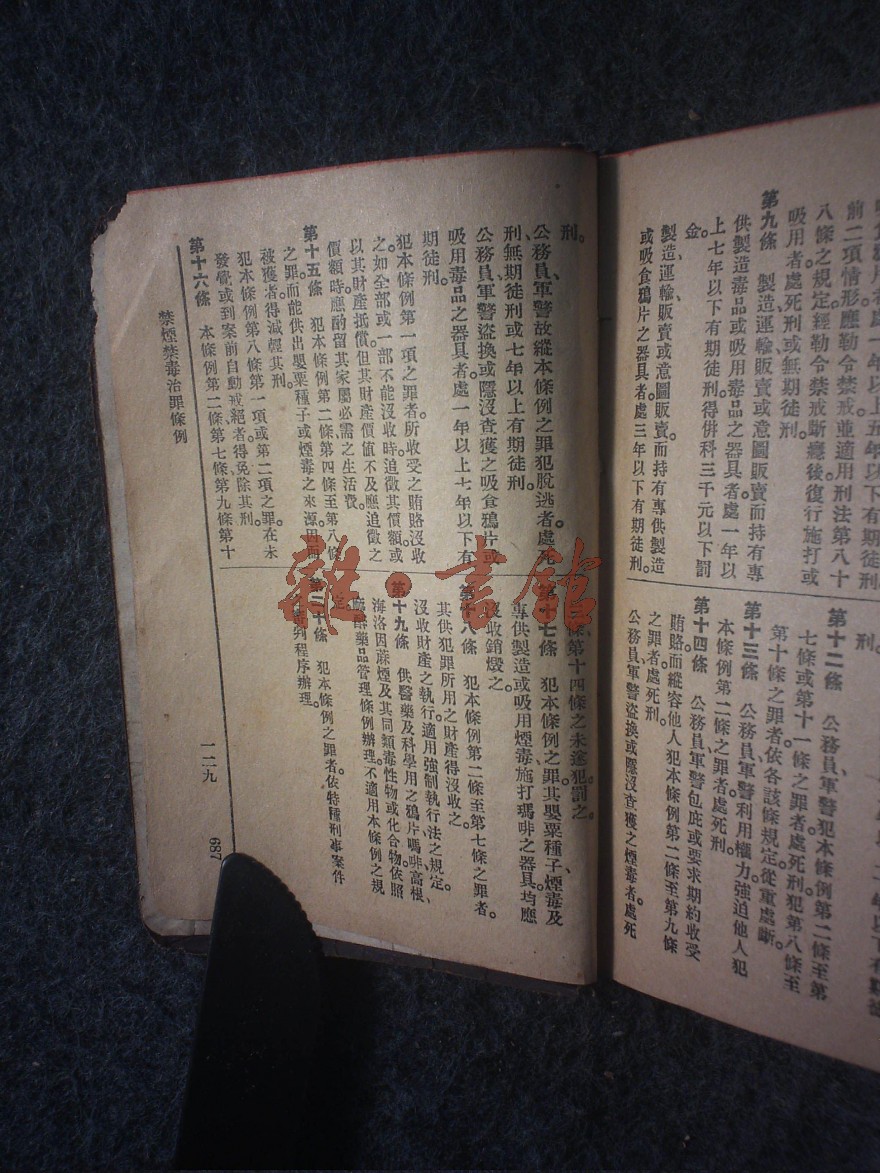 前二項情形應勒令禁戒並適用刑法第八十
八條之規定經勒令禁戒斷癮後復行施打或
吸用者處死刑或無期徒刑。
第九條　製造運輸販賣或意圖販賣而持有專
供製造毒品或吸用毒品之器具者處一年以
上七年以下有期徒刑。得併科三千元以下罰
金。
製造、運輸、販賣或意圖販賣而持有專供製造
或吸食鴉片之器具者處三年以下有期徒刑。
刑。
第十二條　公務員、軍警犯本條例第二條至第
七條或第十一條之罪者處死刑犯第八條至
第十條之罪者依各該條規定從重處斷。
第十三條　公務員、軍警利用權力強迫他人犯
本條例第二條之罪者處死刑。
第十四條　公務員、軍警包庇或要求期約收受
賄賂而縱容他人犯本條例第二條至第九條
之罪者處死刑。
公務員、軍警盜換或隱沒查獲之煙毒者處死
刑。
公務員、軍警故縱本條例之罪犯脫逃者處死
刑、無期徒刑或七年以上有期徒刑。
公務員、軍警盜換或隱沒查獲之吸食鴉片或
吸用毒品之器具者處一年以上七年以下有
期徒刑。
犯本條例第一項之罪者所收受之賄賂沒收
之如全部或一部不能沒收時追徵其價額或
以其財產抵償但其財產價值不及應追徵之
價額時應酌留其家屬必需之生活費。
第十五條　犯本條例第二條第四條至第八條
之罪。而能供出罌粟種子或煙毒之來源因而
被獲者得減輕其刑。
犯本條例第八條第一項或第二項之罪在未
發覺或到案前自動戒絕者得免除其刑。
第十六條　本條例第二條第七條、第九條第十
條、第十四條之未遂犯罰之。
第十七條　犯本條例之罪其罌粟種子、煙毒及
專供製造或吸用煙毒施打瑪啡之器具均應
沒收銷燬之。
第十八條　犯本條例第二條至第七條之罪者。
其供犯罪所用之財產得沒收之。
沒收財產之執行適用強制執行法之規定。
第十九條　供醫藥及科學用之鴉片、嗎啡、高根、
海洛因蔴煙及其同類毒性物或化合物。依照
麻醉藥品管理條例辦理。不適用本條例之規
定。
第二十條　犯本條例之罪者。依特種刑事案件
之審判程序辦理。
禁煙禁毒治罪條例
一二九
687
雜·書館